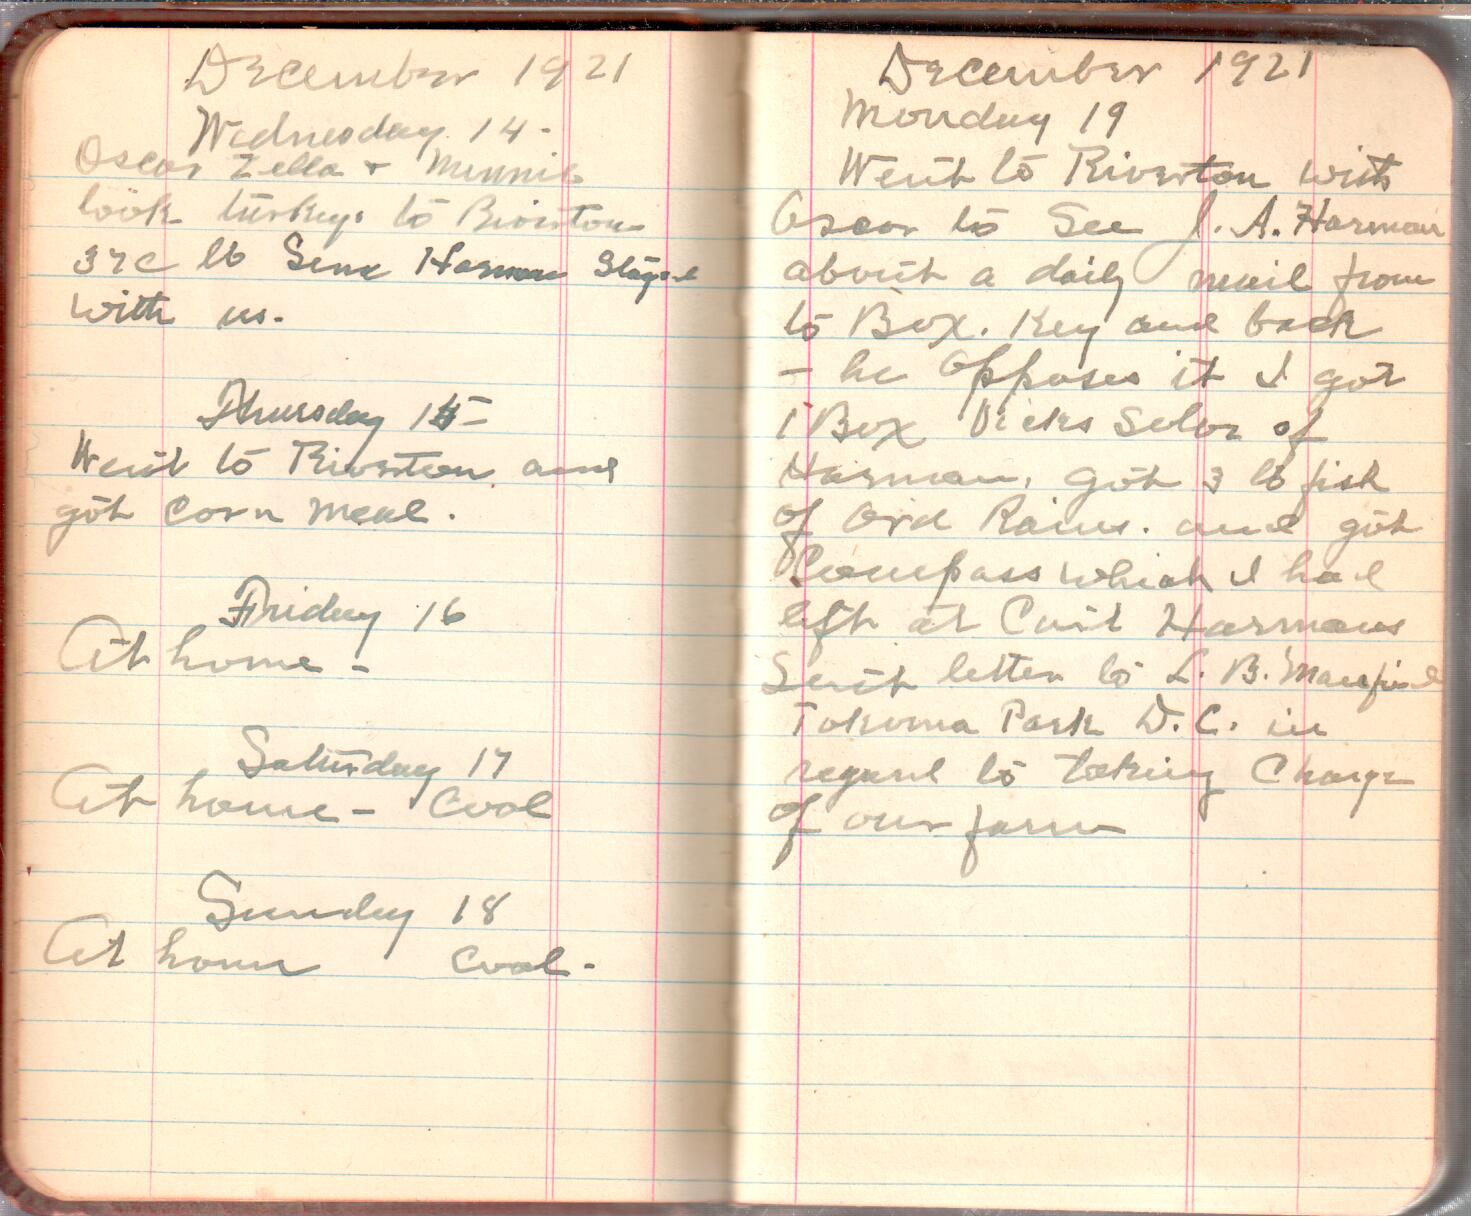 December 1921
Wednesday 14-
Oscar Zella + Minnie
took turkeys to Riverton
37c lb Harman Stayed
with us.
Thursday 15-
Went to Riverton and
got corn meal.
Friday 16
At home -
Saturday 17
At home - Cool
Sunday 18
At home Cool -
December 1921
Monday 19
Went to Riverton with
Oscar to See J. A. Harman
about a daily mail from
to Box. Key and back
- he opposes it I got
1 Box Vicks Salve of
Harman, got 3 lb fish
of and got
Compass which I had
left at Harmans
Sent letter to L. B.
Tokoma Park D.C. in
regard to taking Charge
of our farm